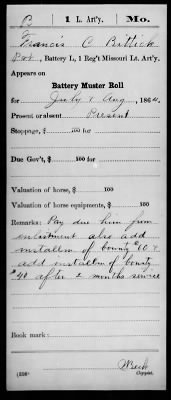 B | 1 L. Art'y. | Mo.
Francis C Buttick
Pvt, Battery L, 1 Reg't Missouri Lt. Art'y.
Appears on
Battery Muster Roll
for July & Aug, 1864.
Present or absent Present
Stoppage, $ 100 for
Due Gov't, $ 100 for
Valuation of horse, $ 100
Valuation of horse equipments, $ 100
Remarks: Pay due him from
enlistment also add
installm of bounty $60 &
add installm of bounty
$40 after 2 months service
Book mark:
(358)
Copyist.